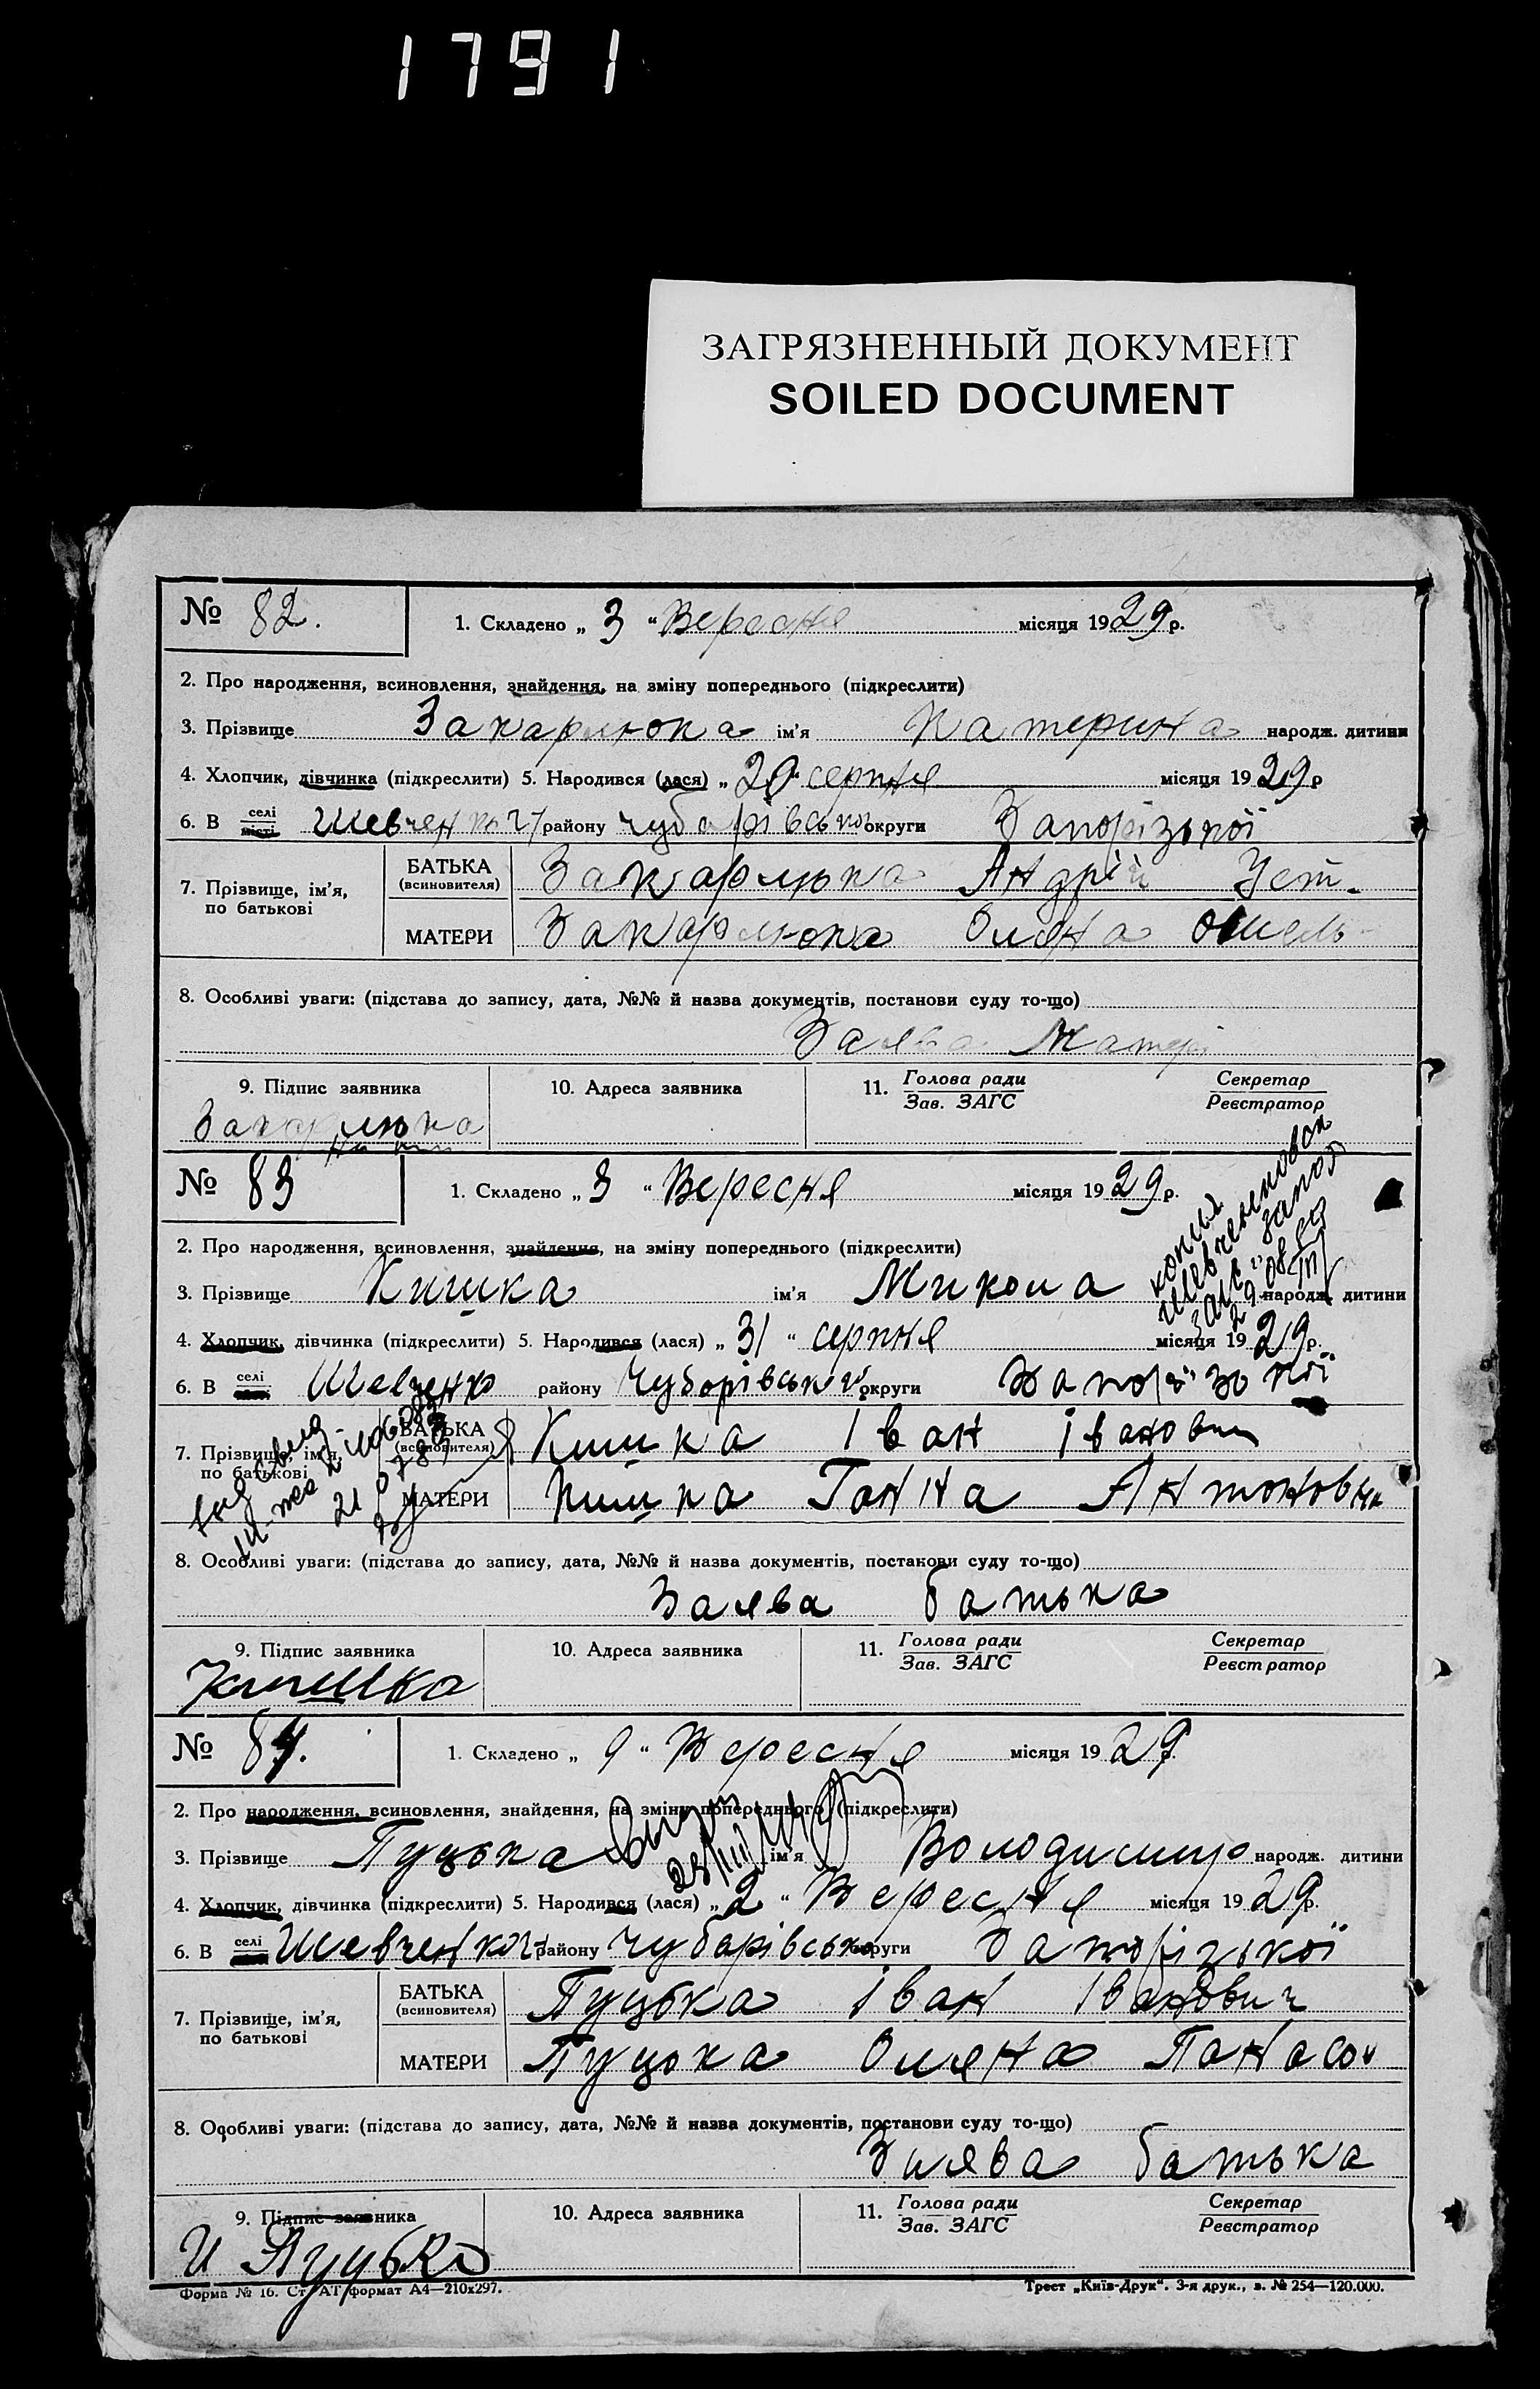 1791
ЗАГРЯЗНЕННЫЙ ДОКУМЕНТ
SOILED DOCUMENT
№ 82. 1. Складено „ 3 “ Вересня місяця 1929р.
2. Про народження, всиновлення, знайдення, на зміну попереднього (підкреслити)
3. Прізвище Закарлюка ім’я Катерина народж. дитини
4. Хлопчик, дівчинка (підкреслити) 5. Народився (лася) „ 20 “ серпня місяця 1929р
6. В селі місті району округи Запорізької
7. Прізвище, ім’я, по батькові
БАТЬКА (всиновителя) Закарлюка Андрій Уст.
МАТЕРИ Закарлюка Оляна Омель-
8. Особливі уваги: (підстава до запису, дата, №№ й назва документів, постанови суду то-що)
Заява Матері
9. Підпис заявника 10. Адреса заявника 11. Голова ради Зав. ЗАГС Секретар Реєстратор
Закарлюка
№ 83 1. Складено „ 3 “ Вересня місяця 1929р.
2. Про народження, всиновлення, знайдення, на зміну попереднього (підкреслити)
3. Прізвище Кишка ім’я Микола народж. дитини
4. Хлопчик, дівчинка (підкреслити) 5. Народився (лася) „ 31 “ серпня місяця 1929р.
6. В селі Шевченко району округи Запорізької
7. Прізвище, ім’я, по батькові
БАТЬКА (всиновителя) Кишка Іван Іванович
МАТЕРИ Кишка Ганна Антоновн
8. Особливі уваги: (підстава до запису, дата, №№ й назва документів, постанови суду то-що)
Заява батька
9. Підпис заявника 10. Адреса заявника 11. Голова ради Зав. ЗАГС Секретар Реєстратор
Кишка
№ 84. 1. Складено „ 9 “ Вересня місяця 1929.
2. Про народження, всиновлення, знайдення, на зміну попереднього (підкреслити)
3. Прізвище Пуцька ім’я Володимир народж. дитини
4. Хлопчик, дівчинка (підкреслити) 5. Народився (лася) „ 2 “ Вересня місяця 1929р.
6. В селі району округи Запорізької
7. Прізвище, ім’я, по батькові
БАТЬКА (всиновителя) Пуцька Іван Іванович
МАТЕРИ Пуцька Оляна Панасов
8. Особливі уваги: (підстава до запису, дата, №№ й назва документів, постанови суду то-що)
Заява батька
9. Підпис заявника 10. Адреса заявника 11. Голова ради Зав. ЗАГС Секретар Реєстратор
И Пуцько
Форма № 16. Ст. АТ формат А4—210x297. Трест „Київ-Друк“. 3-я друк., з. № 254—120.000.